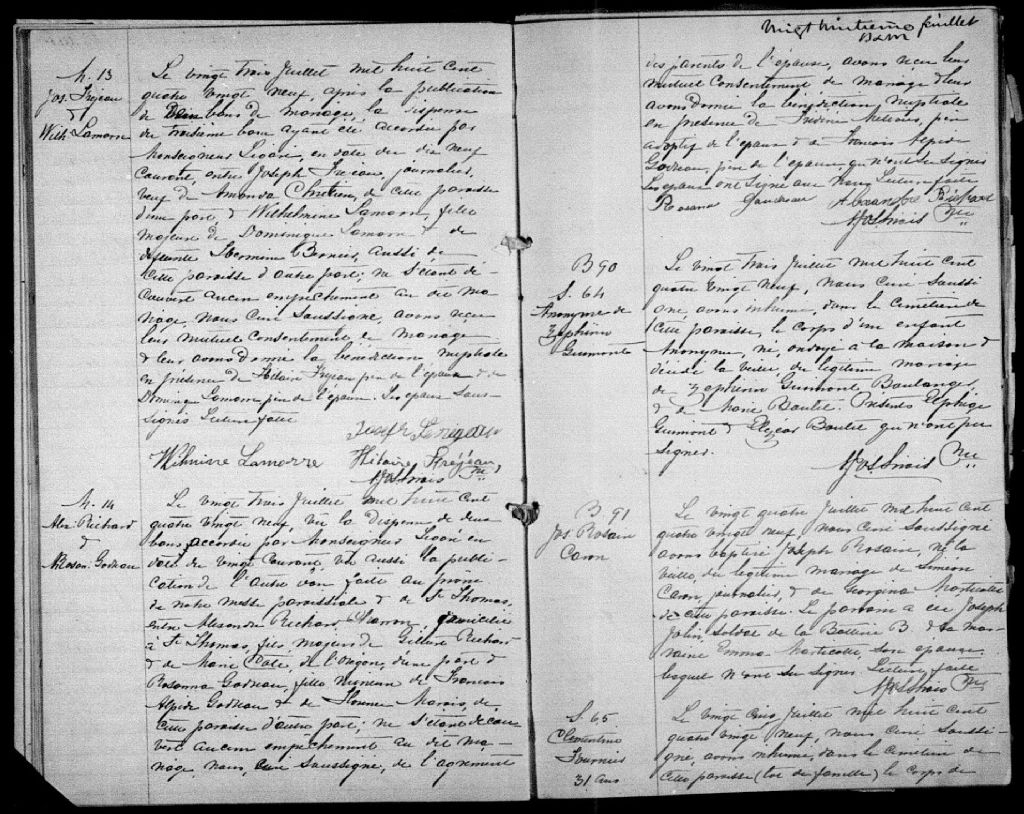 M. 13
Jos. Frejeau
&
Wilh. Lamorre
Le vingt trois Juillet mil huit cent
quatre vingt neuf, après la publication
de deux bans de mariage, la dispense
du troisième ban ayant été accordée par
Monseigneur Légaré, en date du dix neuf
courant, entre Joseph Frejeau, journalier,
veuf de Amanda Chretien, de cette paroisse
d'une part, & Wilhelmine Lamorre, fille
majeure de Dominique Lamorre & de
défunte Hermine Bernier, aussi de
cette paroisse d'autre part; ne s'étant dé-
couvert aucun empêchement au dit ma-
riage, nous Curé soussigné, avons reçu
leur mutuel consentement de mariage
& leur avons donné la bénédiction nuptiale
en présence de Hilaire Frejeau père de l'époux & de
Dominique Lamorre père de l'épouse. Les époux sous-
signés Lecture faite
Joseph
Wilmine Lamorre Hilaire Fréjeau
Ptre
M. 14
Alex. Richard
&
Rosan. Godreau
Le vingt trois Juillet mil huit cent
quatre vingt neuf, vu la dispense de deux
bans accordée par Monseigneur Légaré en
date du vingt courant, vu aussi la publi-
cation de l'autre ban faite au prone
de notre messe paroissiale & de St Thomas,
entre Alexandre Richard, domicilié
à St Thomas, fils majeur de Gilbert Richard
& de Marie Coté, de l'Orégon, d'une part &
Rosanna Godreau, fille mineure de Francois
Alpide Godreau & de Marais, de
cette paroisse d'autre part; ne s'étant décou-
vert aucun empêchement au dit ma-
riage, nous, Curé soussigné, de l'agrément
Vingt huitième feuillet
des parents de l'épouse, avons reçu leur
mutuel consentement de mariage & leur
avons donné la bénédiction nuptiale
en présence de Frédéric père
adoptif de l'époux & de Francois Alpide
Godreau, père de l'épouse qui n'ont su signer
Les époux ont signé avec Nous Lecture faite
Rosana Gaudreau Alexandre Richard
Ptre
B 90
S. 64
Anonyme de
Zéphirin
Guimont
Le vingt trois Juillet mil huit cent
quatre vingt neuf, Nous Curé soussi-
gné avons inhumé, dans le cimetière de
cette paroisse, le corps d'un enfant
Anonyme, né, ondoyé à la maison &
décédé la veille, du légitime mariage
de Zéphirin Guimont, Boulanger,
& de Marie Boulet. Présents Elphège
Guimont & Elzéar Boulet qui n'ont pu
signer.
Ptre
B 91
Jos Rosaire
Caron
Le vingt quatre Juillet mil huit cent
quatre vingt neuf nous Curé soussigné
avons baptisé Joseph Rosaire, né la
veille, du légitime mariage de Siméon
Caron, journalier, & de Georgina Morticotte
de cette paroisse. Le parrain a été Joseph
Jolin, soldat de la Batterie B & la mar-
raine Emma Morticotte, son épouse
lesquels n'ont su signer. Lecture faite
Ptre
S. 65
Clementine
Fournier
31 ans
Le vingt cinq Juillet mil huit cent
quatre vingt neuf, nous curé soussi-
gné, avons inhumé, dans le cimetière de
cette paroisse (lot de famille) le corps de